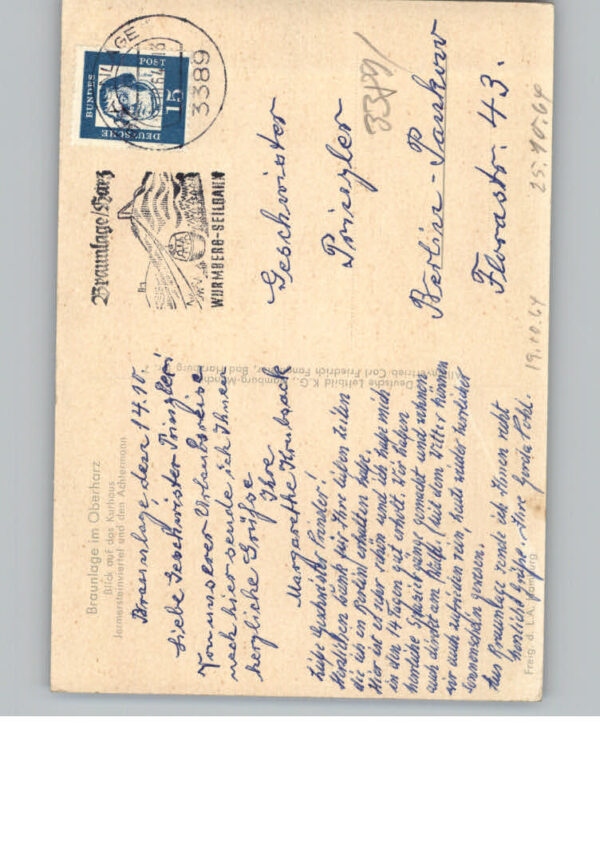 Braunlage im Oberharz
Blick auf das Kurhaus
Jermersteinviertel und den Achtermann
Braunlage den 14.10.
Liebe Geschwister Prinzler!
Von unserer Urlaubsreise
nach hier sende ich Ihnen
herzliche Grüße
Ihre
Margarethe Krubsack
Liebe Geschwister Prinzler!
Herzlichen Dank für Ihre lieben Zeilen
die ich in Berlin erhalten habe.
Hier ist es sehr schön und ich habe mich
in den 14 Tagen gut erholt. Wir haben
herrliche Spaziergänge gemacht und wohnen
auch direkt am Walde. Mit dem Wetter können
wir auch zufrieden sein, heute wieder herrlicher
Sonnenschein gewesen.
Aus Braunlage sende ich Ihnen recht
herzliche Grüße. Ihre Gerda Pohl.
Freig. d. L.A.
Deutsche Luftbild K.G., Hamburg-München
Alleinvertrieb: Carl Friedrich Bad Harzburg
DEUTSCHE
BUNDES
POST
15
3389
Braunlage/Harz
WURMBERG-SEILBAHN
3389/
Geschwister
Prinzler
Berlin-Pankow
Florastr. 43.
19.10.64
25.10.64